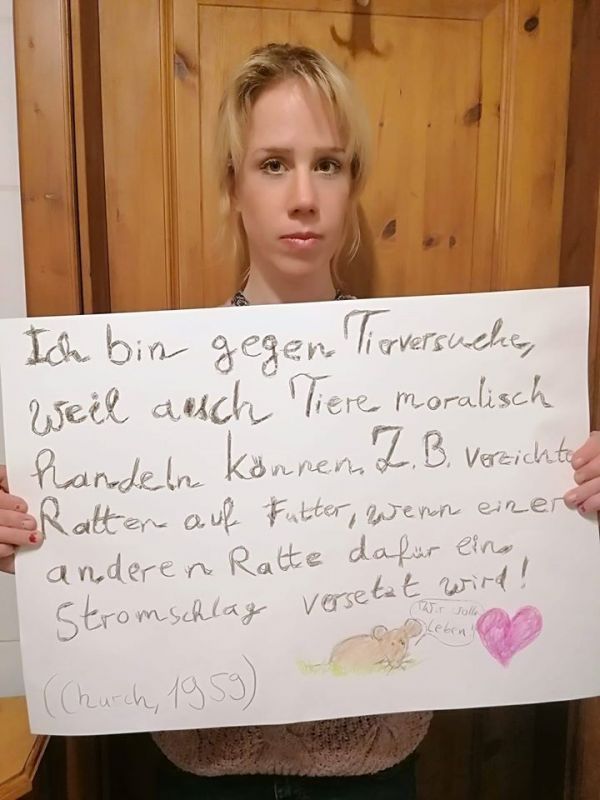 Ich bin gegen Tierversuche,
weil auch Tiere moralisch
handeln können. Z.B. verzichten
Ratten auf Futter, wenn einer
anderen Ratte dafür ein
Stromschlag versetzt wird!
Wir wollen
Leben!
(Church, 1959)